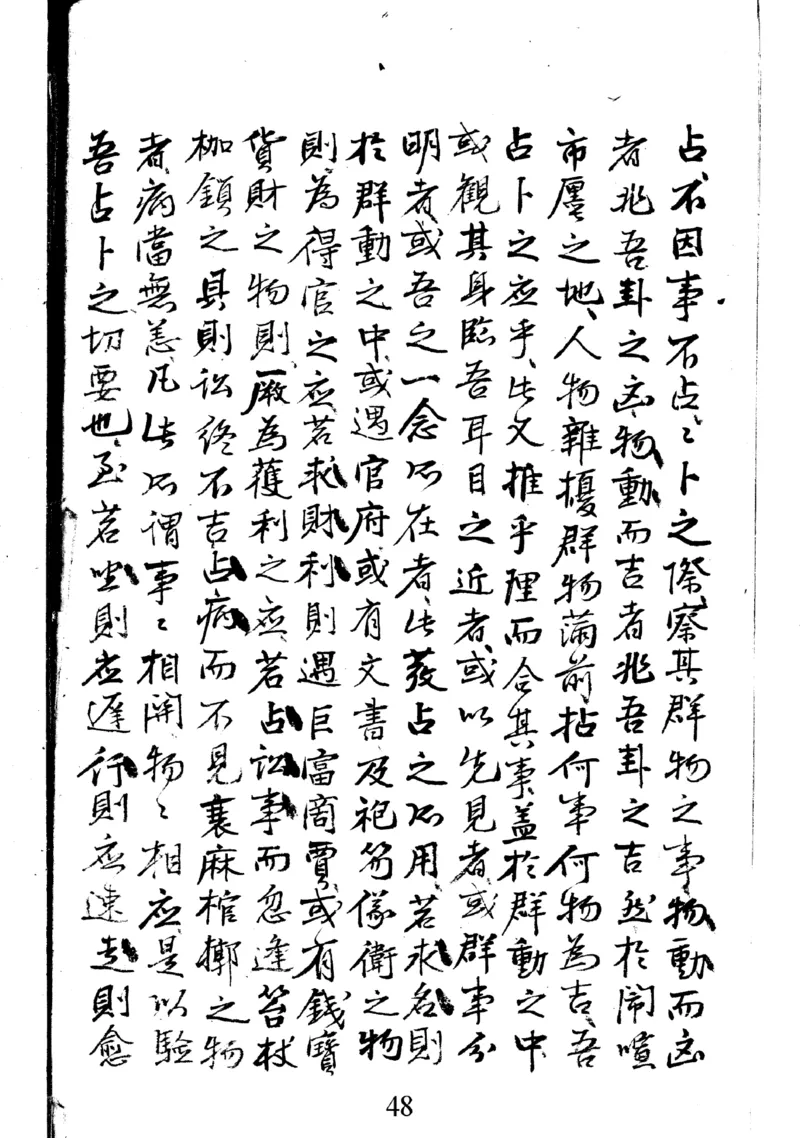 占、不因事不占、〻卜之際、察其群物之事、物動而凶
者兆吾卦之凶、物動而吉者兆吾卦之吉、然於鬧喧
市廛之地、人物雜擾、群物滿前、拈何事何物為吉、吾
占卜之应乎、此又推乎理而合其事、蓋於群動之中
或観其身臨吾耳目之近者、或以先見者、或群事分
明者、或吾之一念所在者、此發占之所用、若求名則
於群動之中、或遇官府或有文書及袍笏儀衛之物
則為得官之应、若求財利則遇巨富商賈、或有錢寶
貨財之物則、厥為獲利之应、若占訟事而忽逢笞杖
枷鎖之具、則訟終不吉、占病而不見衰麻棺槨之物
者、病當無恙、凡此所謂事〻相関、物〻相应、是以驗
吾占卜之切要也、至若坐則应遲、行則应速、走則愈
48